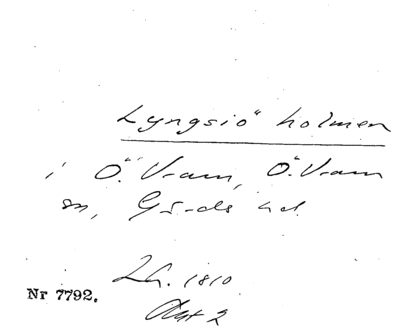 Lyngsiö" holmen
i Ö. Vram, Ö. Vram
sn, Gärds hd.
Lh. 1810
Nr 7792.
Akt 2